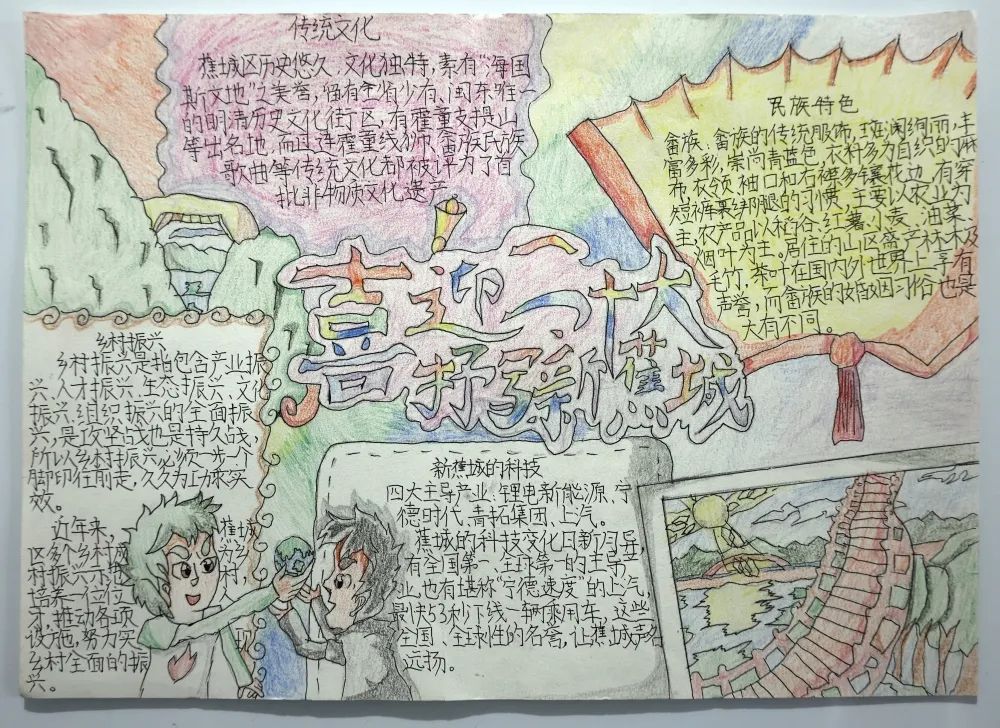 传统文化
蕉城区历史悠久,文化独特,素有“海国
斯文地”之美誉,留有全省少有、闽东唯一
的明清历史文化街区,有霍童支提山
等出名地,而且连霍童线狮、畲族民族
歌曲等传统文化都被评为了首
批非物质文化遗产
民族特色
畲族:畲族的传统服饰,斑阑绚丽,丰
富多彩,崇尚青蓝色,衣料多为自织的麻
布,衣领、袖口和右襟多镶花边,有穿
短裤裹绑腿的习惯。主要以农业为
主,农产品以稻谷、红薯、小麦、油菜、
烟叶为主。居住的山区盛产林木及
毛竹,茶叶在国内外世界上享有
声誉,而畲族的婚姻习俗也是
大有不同。
喜迎二十大
抒写新蕉城
乡村振兴
乡村振兴是指包含产业振
兴、人才振兴、生态振兴、文化
振兴、组织振兴的全面振
兴,是攻坚战也是持久战,
所以乡村振兴必须一步一个
脚印往前走,久久为功求实
效。
近年来,蕉城
区多个乡村成为
村振兴示范村,
培养一位位人
才,推动各项
设施,努力实现
乡村全面的振
兴。
新蕉城的科技
四大主导产业、锂电新能源、宁
德时代、青拓集团、上汽。
蕉城的科技变化日新月异,
有全国第一、全球第一的主导
业,也有堪称“宁德速度”的上汽,
最快53秒下线一辆乘用车,这些
全国、全球性的名誉,让蕉城声名
远扬。